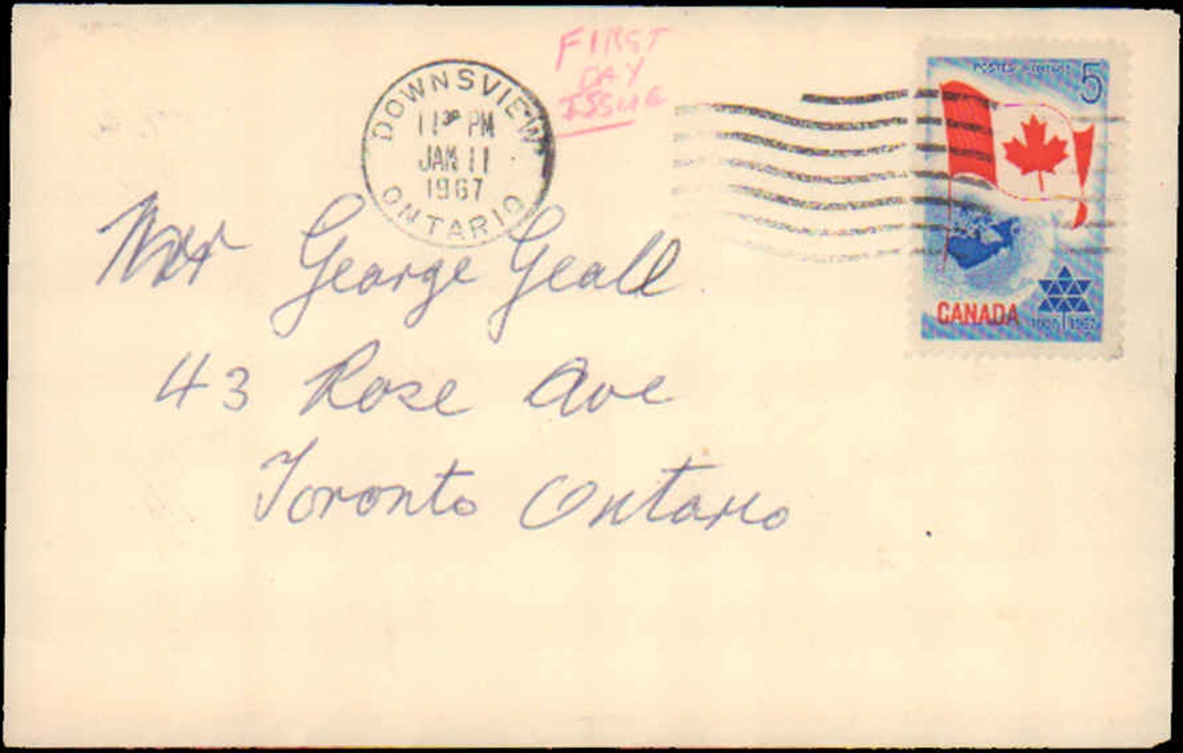 FIRST
DAY
ISSUE
DOWNSVIEW
11³⁰ PM
JAN 11
1967
ONTARIO
POSTES POSTAGE 5
CANADA
1867 1967
George Geall
43 Rose Ave
Toronto Ontario